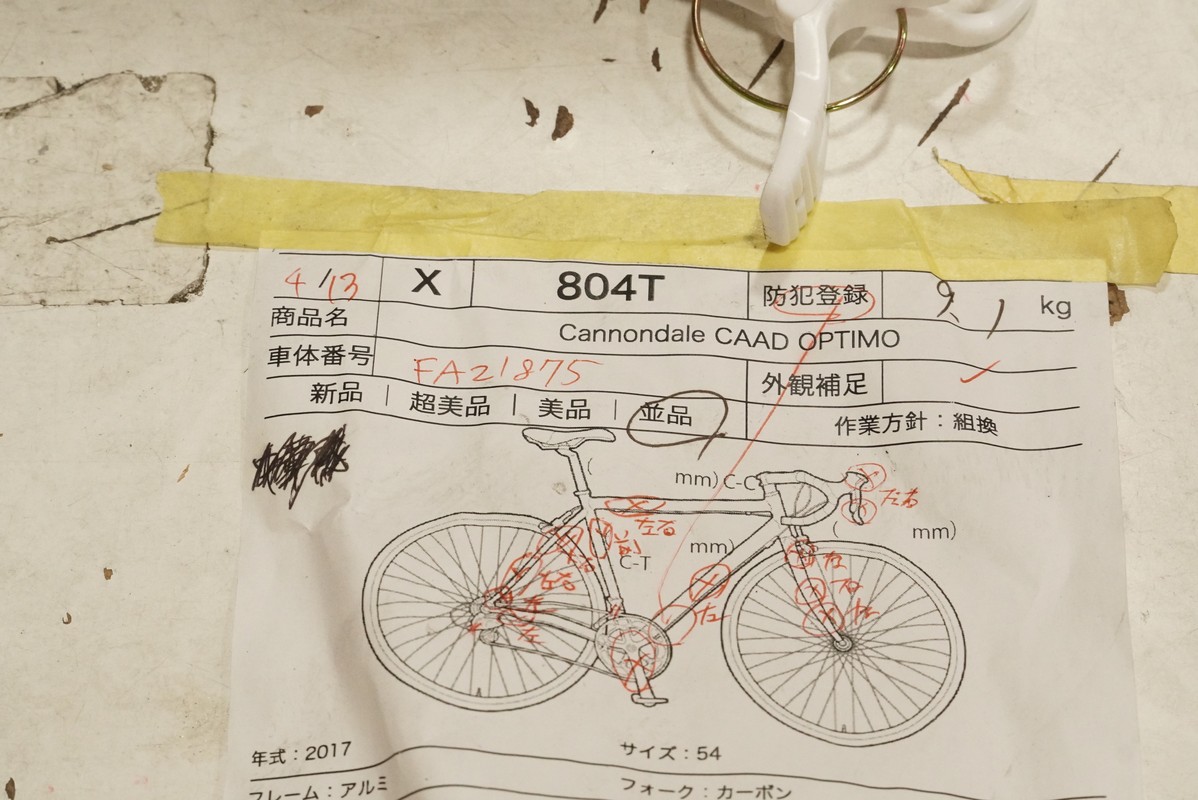 4/13 X 804T 防犯登録 9.1 kg
商品名 Cannondale CAAD OPTIMO
車体番号 FA21875 外観補足 ✓
新品 | 超美品 | 美品 | 並品 作業方針：組換
mm) C-C
左右
左右
mm)
mm)
C-T
右
左右
右
左
左
年式：2017 サイズ：54
フレーム：アルミ フォーク：カーボン